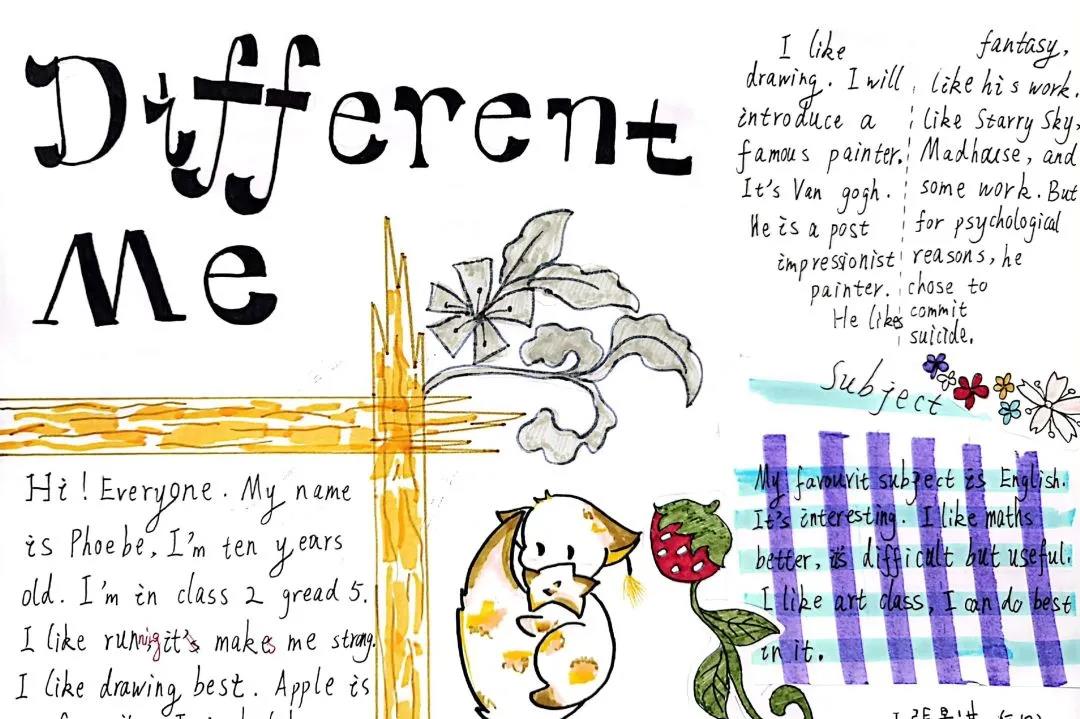 Different
Me
Hi! Everyone. My name
is Phoebe, I'm ten years
old. I'm in class 2 gread 5.
I like runnig, it's makes me strong.
I like drawing best. Apple is
I like
drawing. I will
introduce a
famous painter.
It's Van gogh.
He is a post
impressionist
painter.
He likes
fantasy,
like his work.
like Starry Sky,
Madhouse, and
some work. But
for psychological
reasons, he
chose to
commit
suicide.
Subject
My favourit subject is English.
It's interesting. I like maths
better, is difficult but useful.
I like art class, I can do best
in it.